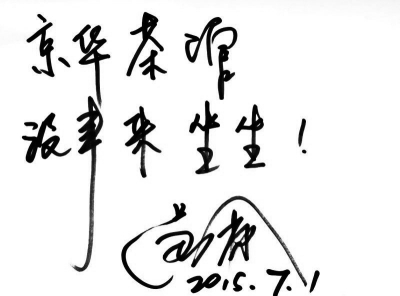 京华茶馆
没事来坐坐！
2015.7.1